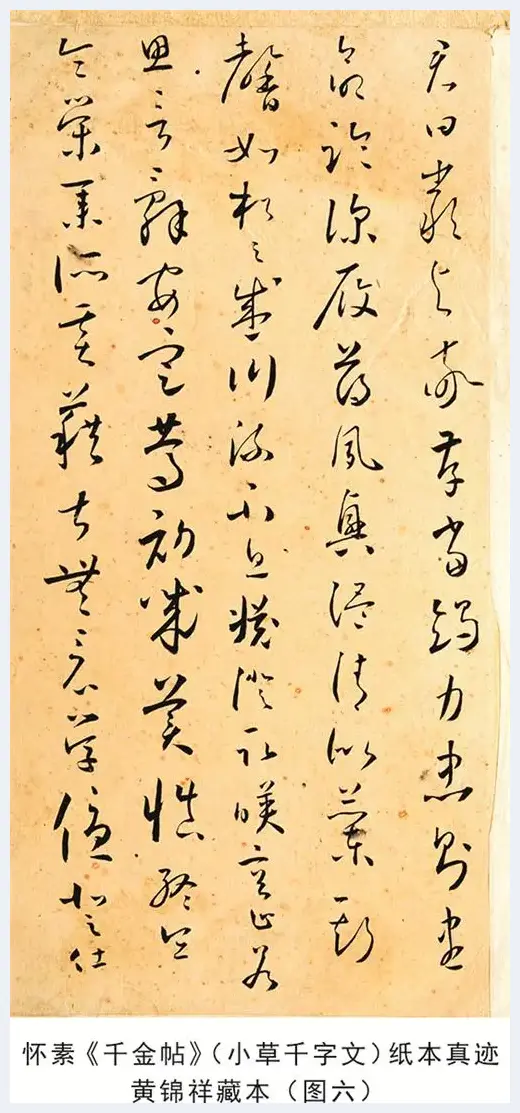 君曰嚴與敬孝當竭力忠則盡
命臨深履薄夙興溫清似蘭斯
馨如松之盛川流不息淵澄取暎容止若
思言辭安定篤初誠美慎終宜
令榮業所基藉甚無竟學優登仕
怀素《千金帖》(小草千字文)纸本真迹
黄锦祥藏本（图六）